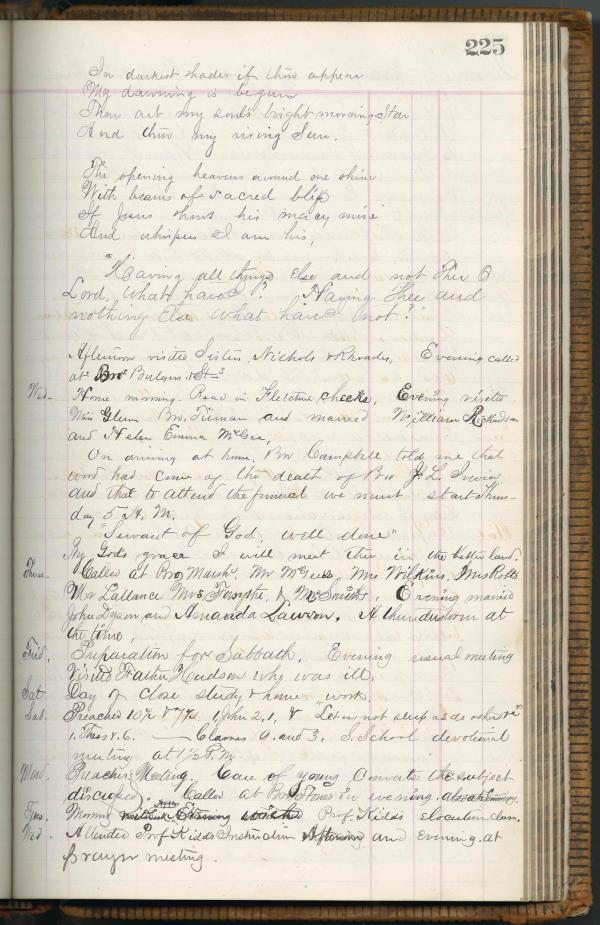 225
In darkest shades if thou appear
My dawning is begun
Thou art my soul's bright morning Star
And thou my rising Sun.
The opening heavens around me shine
With beams of sacred bliss
If Jesus shows his mercy mine
And whispers I am his,
"Having all things else and not Thee O
Lord, what have I? Having Thee and
nothing else what have I not?"
Afternoon visited Sisters Nichols & Rhoades, Evening called
at Bro
Wed- Home morning. Read in Fletcher checks, Evening visited
Miss Glenn Bro. Tilman and married William Richardson
and Helen Emma McGee,
On arriving at home, Bro Campbell told me that
word had come of the death of Bro J. L. Irwin
and that to attend the funeral we must start Thurs-
day 5 A. M.
"Servant of God, well done"
By God's grace I will meet thee in the better land.
Thurs- Called at Bro, Marsh, Mr McGees, Mrs Wilkins, Mrs Robb
Mr Lallance Mrs Forsythe, & McSmiths, Evening married
John Dyson and Amanda Lawson. A thunderstorm at
the time,
Frid. Preparation for Sabbath. Evening usual meeting
Visited Father Hudson who was ill.
Sat Day of close study & home work.
Sab. Preached 10½ & 7½ 1 John 2,1, & "Let us not sleep as do others"
1, Thes 5. 6. — Classes 1. and 3, S. School devotional
meeting at 1½ P. M.
Mond. Preachers Meeting. Care of young Converts the subject
discussed. Called at Bro Jones in evening.
Tues. Morning Prof. Kidds elocution class.
Wed. Attended Prof Kidds Instruction and Evening at
prayer meeting.